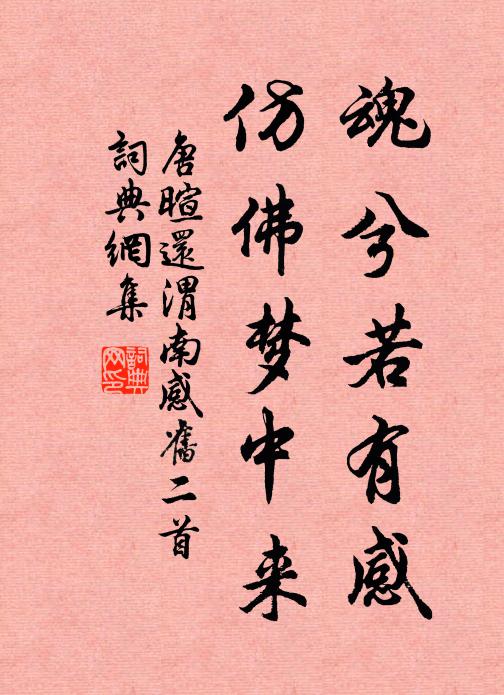 魂兮若有感
仿佛梦中来
唐暄還渭南感舊二首
詞典網集
詞典網印